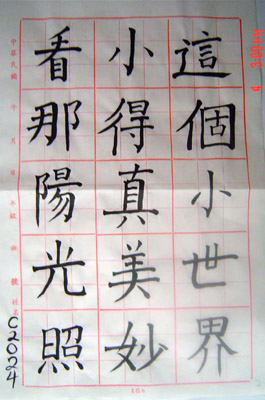 這個小世界
小得真美妙
看那陽光照
中華民國 年 月 日 年級 班 號 姓名
C2024